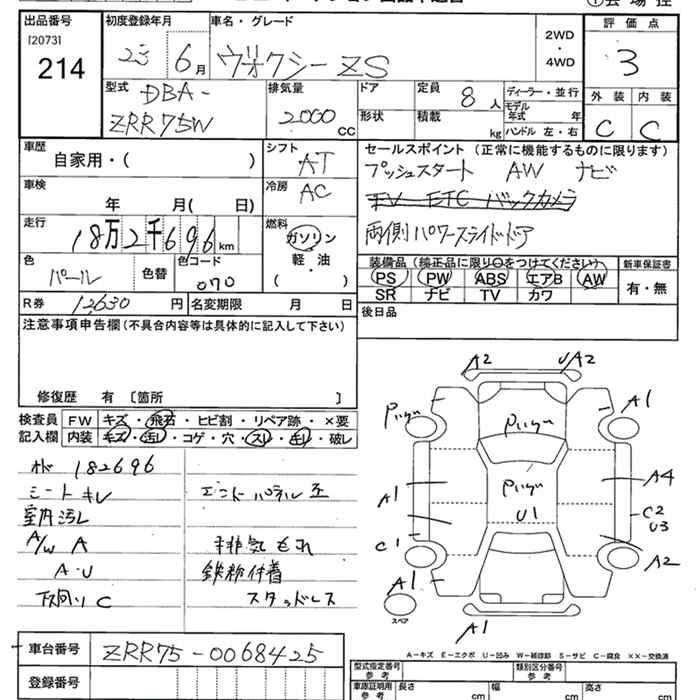 出品番号 初度登録年月 車名・グレード 評価点
[2073]
214
23 6月 ヴォクシー ZS
2WD・4WD
3
型式 排気量 ドア 定員 8人 ディーラー・並行
DBA-
ZRR75W
2000 CC
形状 積載 kg
モデル年式 年
ハンドル 左・右
外装 内装
C C
車歴 シフト セールスポイント(正常に機能するものに限ります)
自家用・( )
AT
プッシュスタート AW ナビ
車検 冷房
年 月( 日)
AC
TV ETC バックカメラ
走行 燃料
18万2千696km
ガソリン
軽・油
( )
両側パワースライドドア
色 色替 色コード
パール 070
装備品(純正品に限り○をつけてください) 新車保証書
PS PW ABS エアB AW 有・無
SR ナビ TV カワ
R券 12630円 名変期限 月 日
後日品
注意事項申告欄(不具合内容等は具体的に記入して下さい)
修復歴 有 [箇所 ]
検査員記入欄
FW キズ・飛石・ヒビ割・リペア跡・×要
内装 キズ・汚レ・コゲ・穴・スレ・キレ・破レ
182696
シートキレ エンドパネル歪
室内汚レ
A/W A 排気もれ
A・U 鉄粉付着
下回りC スタッドレス
A2 UA2
A1
A1
A4
U1
C2
U3
C1
A2
A1
スペア
A1
A-キズ E-エクボ U-凹ミ W-補修跡 S-サビ C-腐食 ××-交換済
車台番号 ZRR75-0068425
登録番号
型式指定番号 参考 類別区分番号 参考
車庫証明用 参考 長さ cm 幅 cm 高さ cm